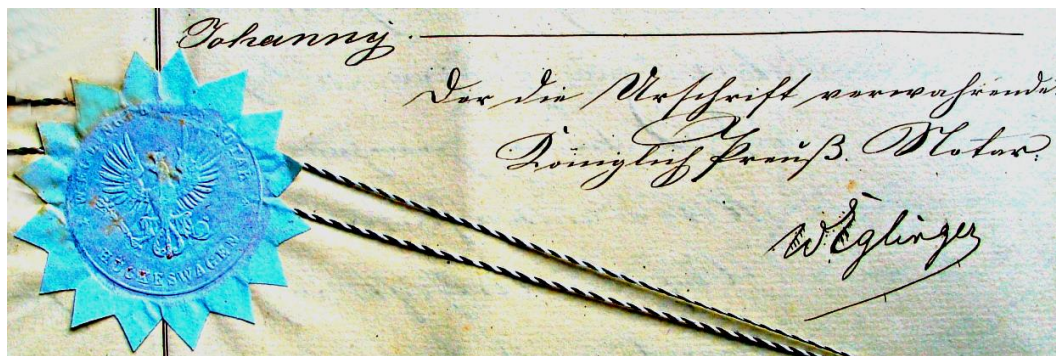 Johanny.
Der die Urschrift verwahrende
Königlich Preuß. Notar:
WEglinger
HÜCKESWAGEN